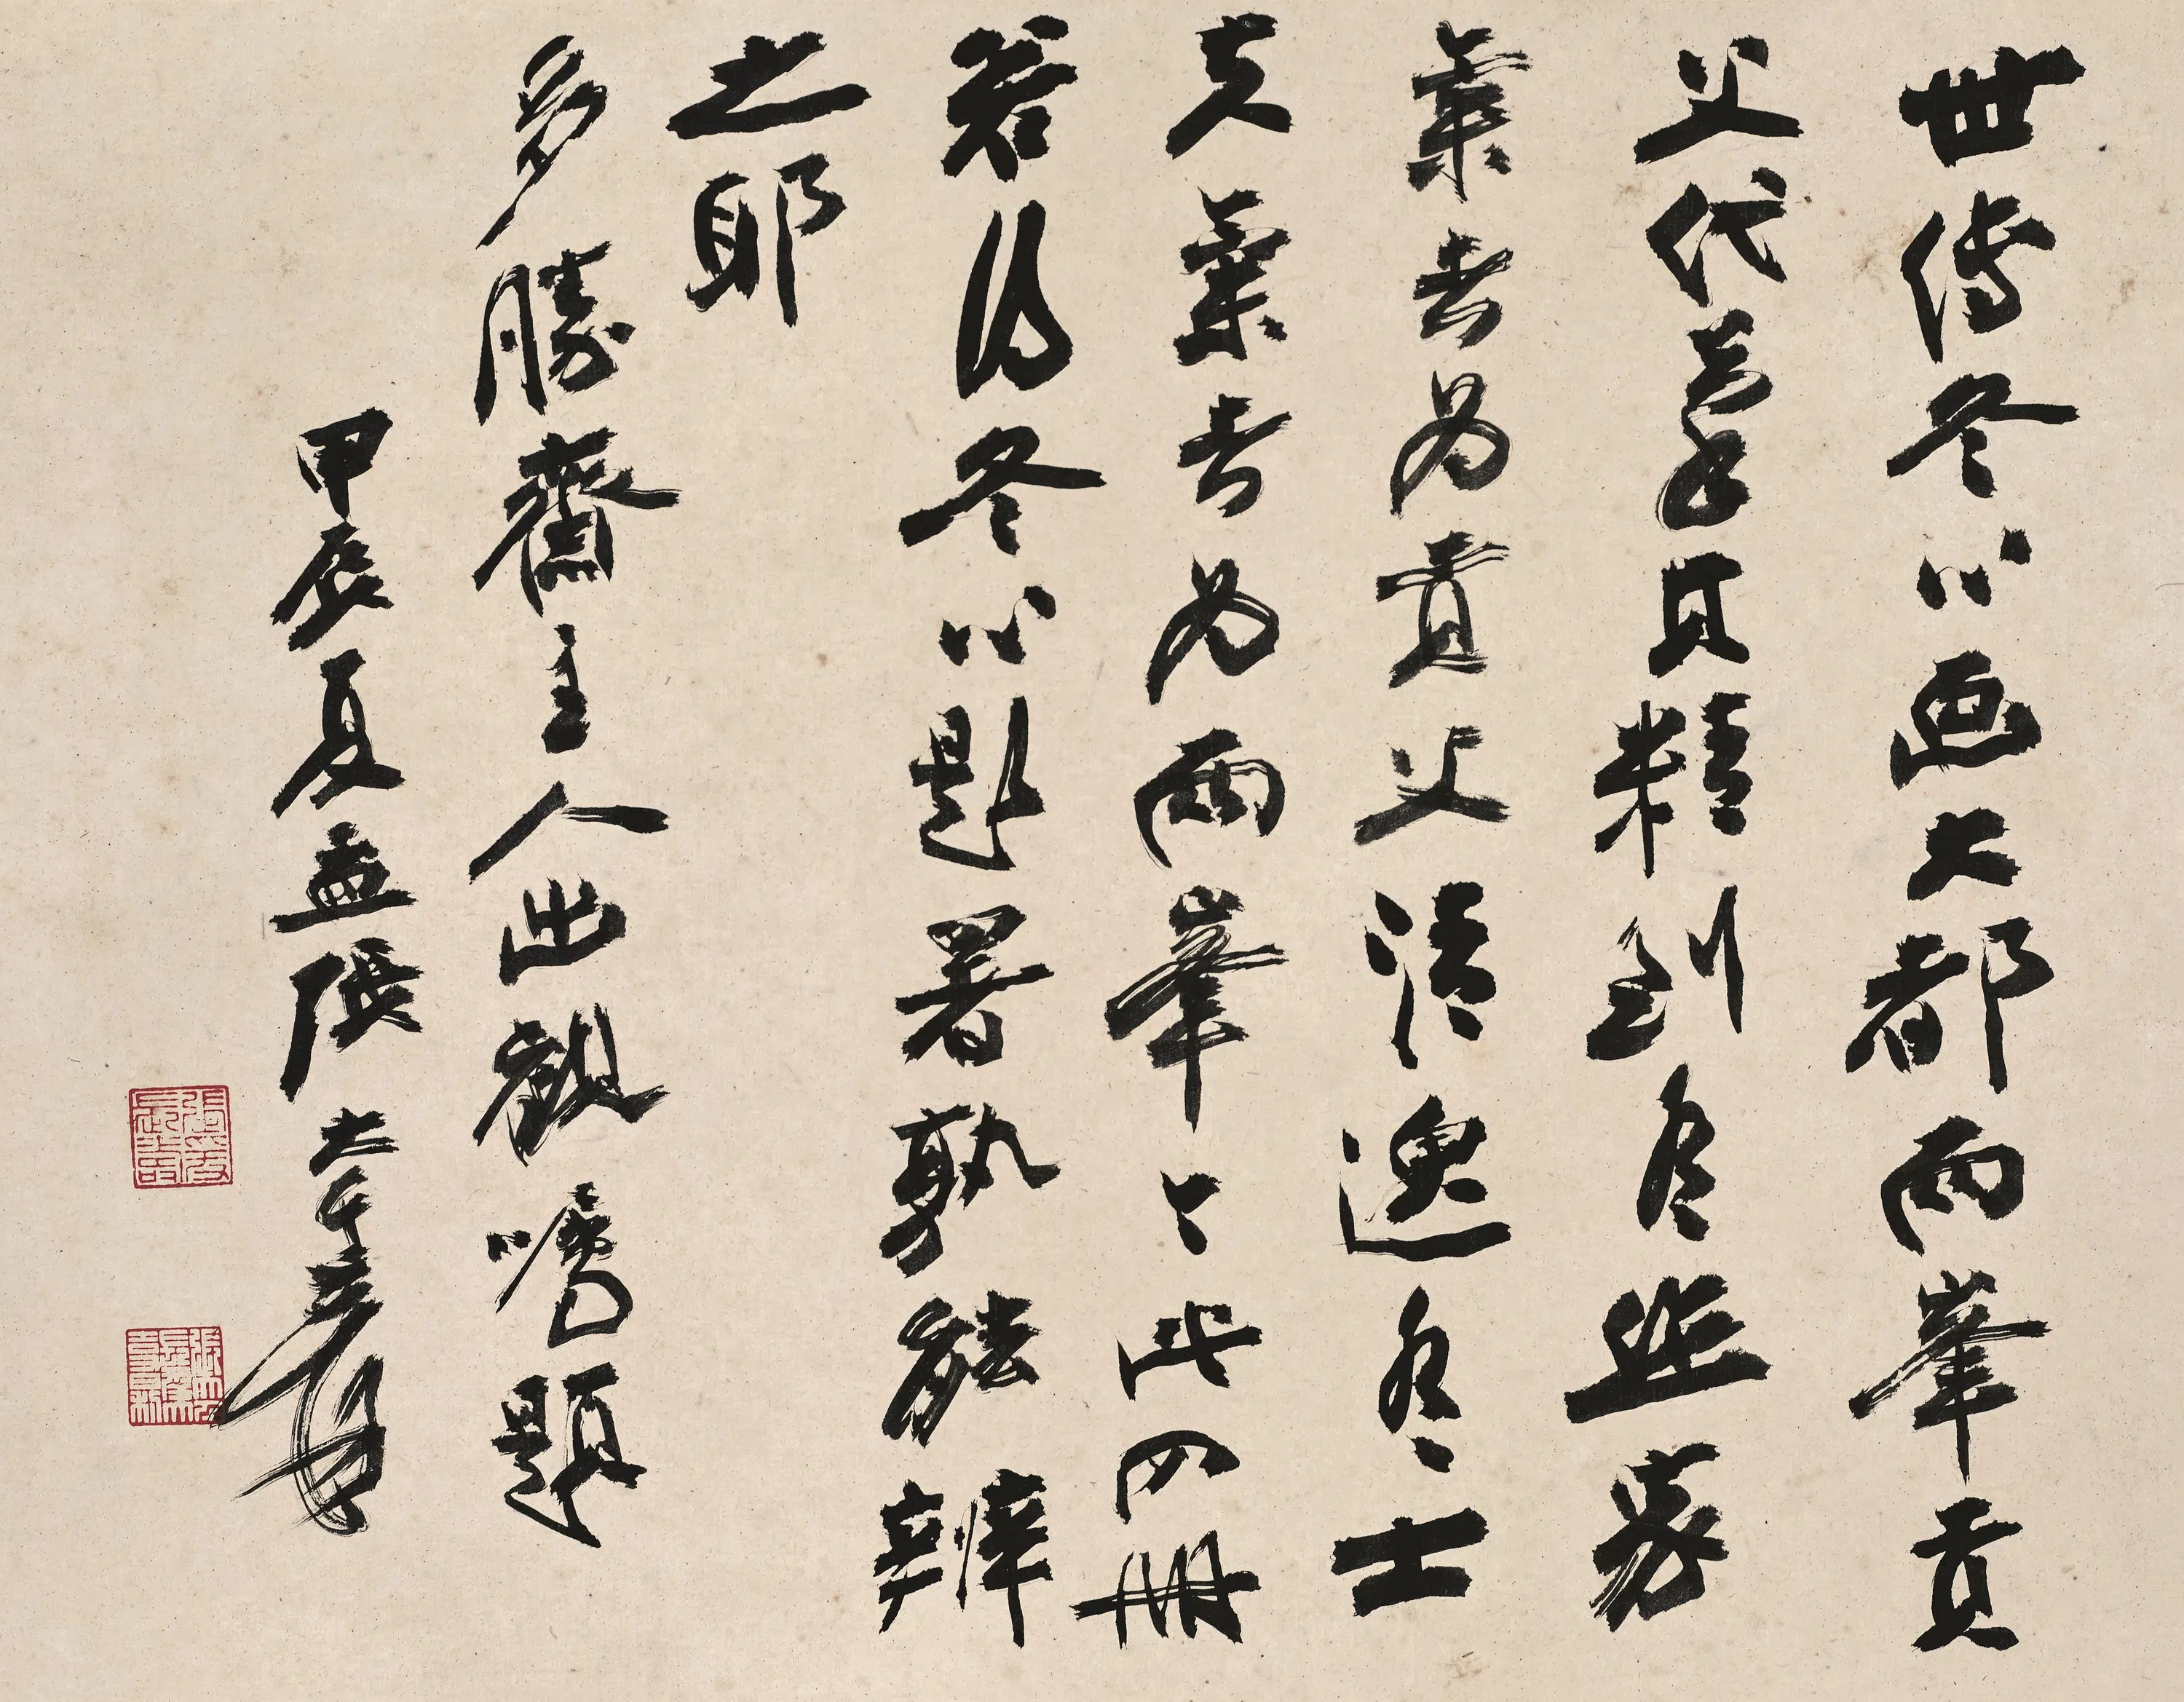 世傳冬心画大都兩峯貢
父代筆其精到有匠家
氣者為貢父清逸有士
夫氣者為兩峯此四冊
若冬心題署孰能辨
之耶
多勝齋主人出觀嘱題
甲辰夏孟張大千爰